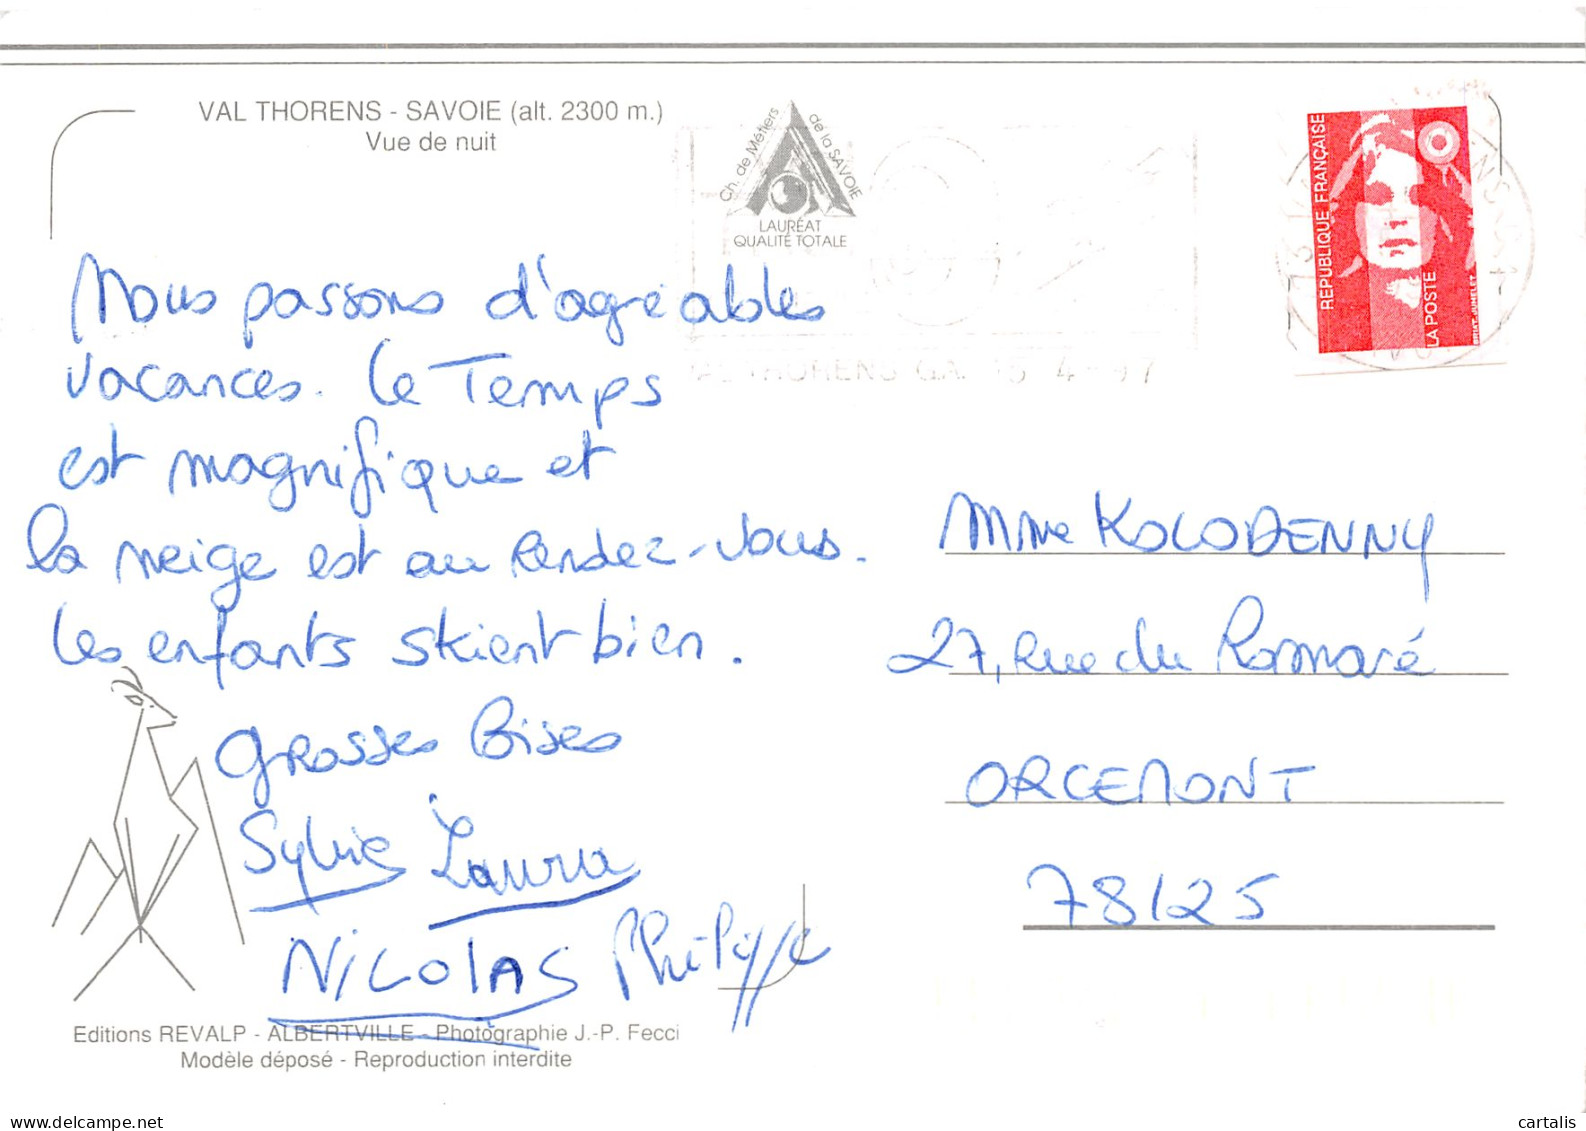 VAL THORENS - SAVOIE (alt. 2300 m.)
Vue de nuit
Ch. de Métiers de la SAVOIE
LAURÉAT
QUALITÉ TOTALE
RÉPUBLIQUE FRANÇAISE
LA POSTE
VAL THORENS
Nous passons d'agréables
vacances. Le Temps
est magnifique et
la neige est au Rendez-vous.
Les enfants skient bien.
Grosses Bises
Sylvie Laura
NICOLAS Philippe
Mme KOLODENNY
27, Rue du Romaré
ORCEMONT
78125
Editions REVALP - ALBERTVILLE - Photographie J.-P. Fecci
Modèle déposé - Reproduction interdite
delcampe.net
cartalis